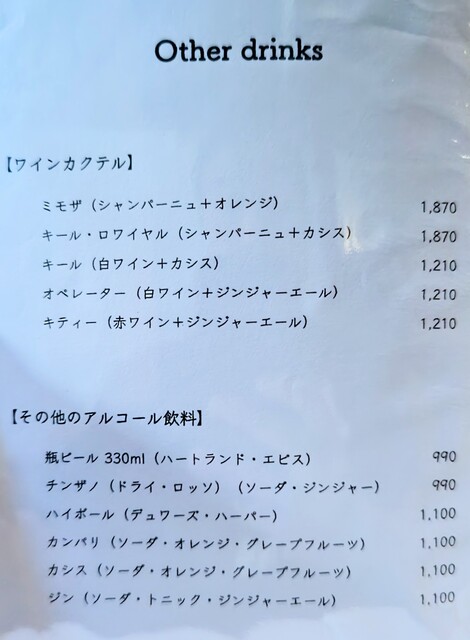 Other drinks
【ワインカクテル】
ミモザ（シャンパーニュ＋オレンジ） 1,870
キール・ロワイヤル（シャンパーニュ＋カシス） 1,870
キール（白ワイン＋カシス） 1,210
オペレーター（白ワイン＋ジンジャーエール） 1,210
キティー（赤ワイン＋ジンジャーエール） 1,210
【その他のアルコール飲料】
瓶ビール 330ml（ハートランド・エビス） 990
チンザノ（ドライ・ロッソ）（ソーダ・ジンジャー） 990
ハイボール（デュワーズ・ハーパー） 1,100
カンパリ（ソーダ・オレンジ・グレープフルーツ） 1,100
カシス（ソーダ・オレンジ・グレープフルーツ） 1,100
ジン（ソーダ・トニック・ジンジャーエール） 1,100